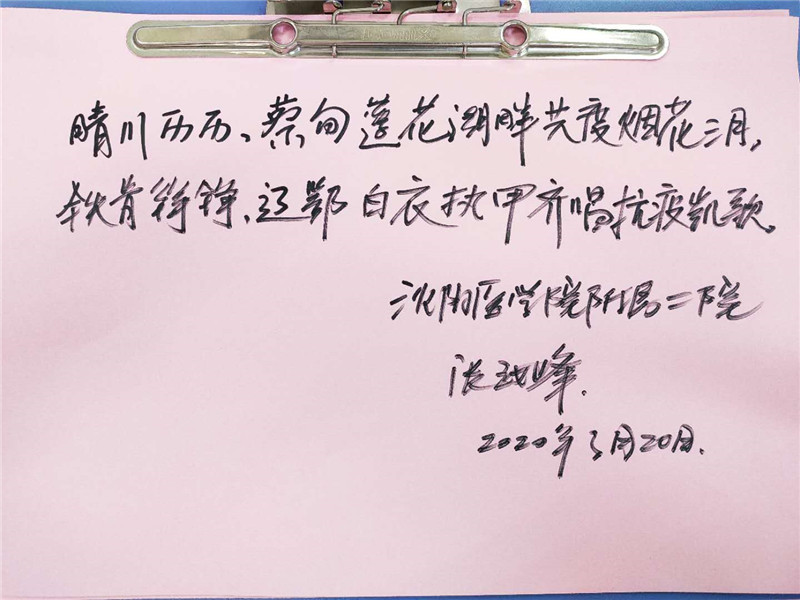 晴川历历、蔡甸莲花湖畔共度烟花三月，
铁骨铮铮、辽鄂白衣执甲齐唱抗疫凯歌。
沈阳医学院附属二院
张
峰.
2020年3月20日.